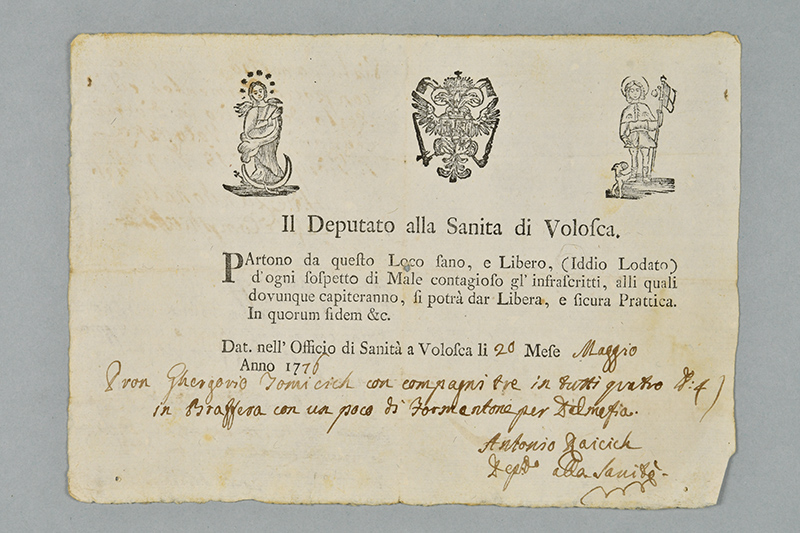 Il Deputato alla Sanita di Voloſca.
PArtono da queſto Loco ſano, e Libero, (Iddio Lodato)
d'ogni ſoſpetto di Male contagioſo gl' infraſcritti, alli quali
dovunque capiteranno, ſi potrà dar Libera, e ſicura Prattica.
In quorum fidem &c.
Dat. nell' Officio di Sanità a Voloſca li 20 Meſe Maggio
Anno 1776
Pron Ghergorio Tomicich con compagni tre in tutti quatro N: 4
in Brassera con un poco di formentone per Dalmasia.
Antonio Raicich
Depdo alla Sanità.